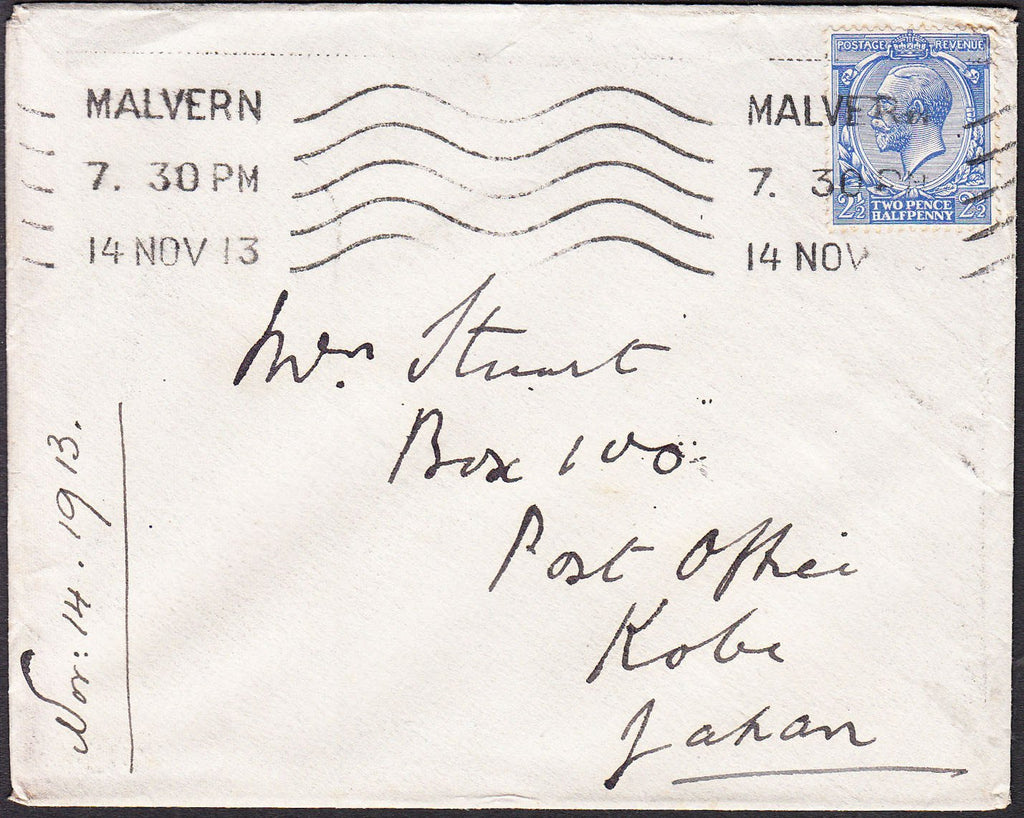 MALVERN
7. 30 PM
14 NOV 13
MALVERN
7. 30 PM
14 NOV
POSTAGE REVENUE
2½ TWO PENCE HALFPENNY 2½
Mrs. Stuart
Box 100
Post Office
Kobe
Japan
Nov: 14. 1913.